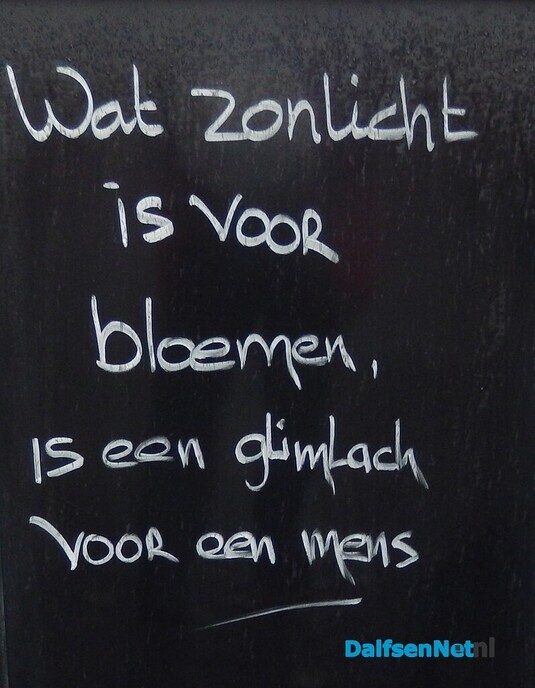 Wat zonlicht
is voor
bloemen,
is een glimlach
voor een mens
DalfsenNet.nl